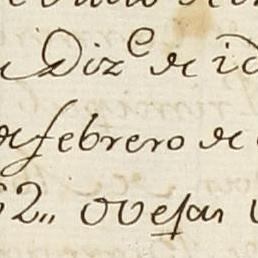 Diz^e de 1
de febrero de
62,, ovejas